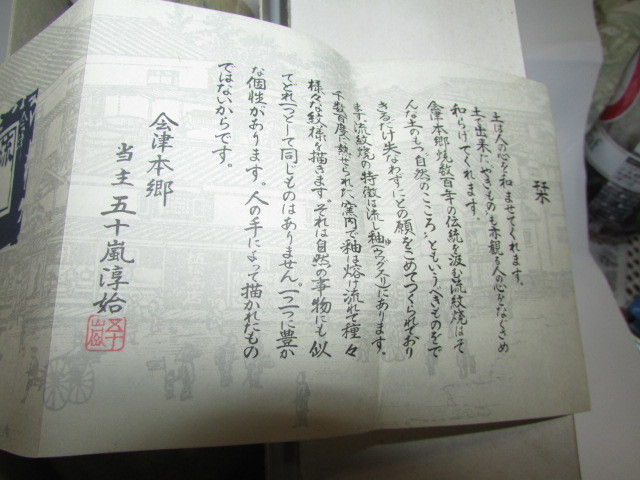 栞
土は人の心を和ませてくれます。
土で出来たやきものも亦観る人の心をなぐさめ
和らげてくれます。
会津本郷焼数百年の伝統を汲む流紋焼はそ
んな土のもつ自然のこころ〟ともいうべきものをで
きるだけ失なわずにとの願をこめてつくられており
ます。流紋焼の特徴は流し釉(ウワグスリ)にあります。
千数百度に熱せられた窯内で釉は熔け流れて種々
様々な紋様を描きます。それは自然の事物にも似
てどれ一つとして同じものはありません。一つ一つに豊か
な個性があります。人の手によって描かれたもの
ではないからです。
会津本郷
当主 五十嵐淳始
五十
嵐
流